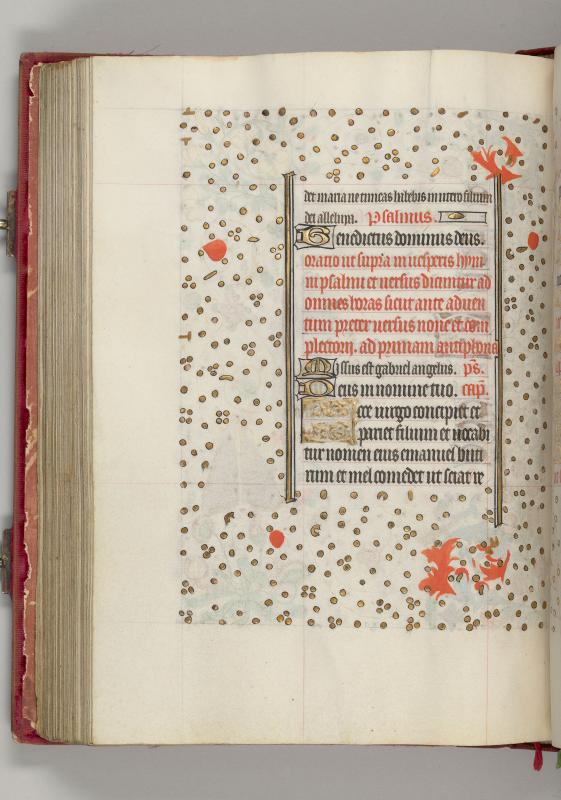 det maria ne timeas habebis in utero filium
dei alleluya. Psalmus.
Benedictus dominus deus.
oratio ut supra in vesperis hym
ni psalmi et versus dicuntur ad
omnes horas sicut ante adven
tum preter versus none et com
plectorij. ad primam antiphona
Missus est gabriel angelus. ps.
Deus in nomine tuo. cap.
Ecce virgo concipiet et
pariet filium et vocabi
tur nomen eius emanuel buti
rum et mel comedet ut sciat re